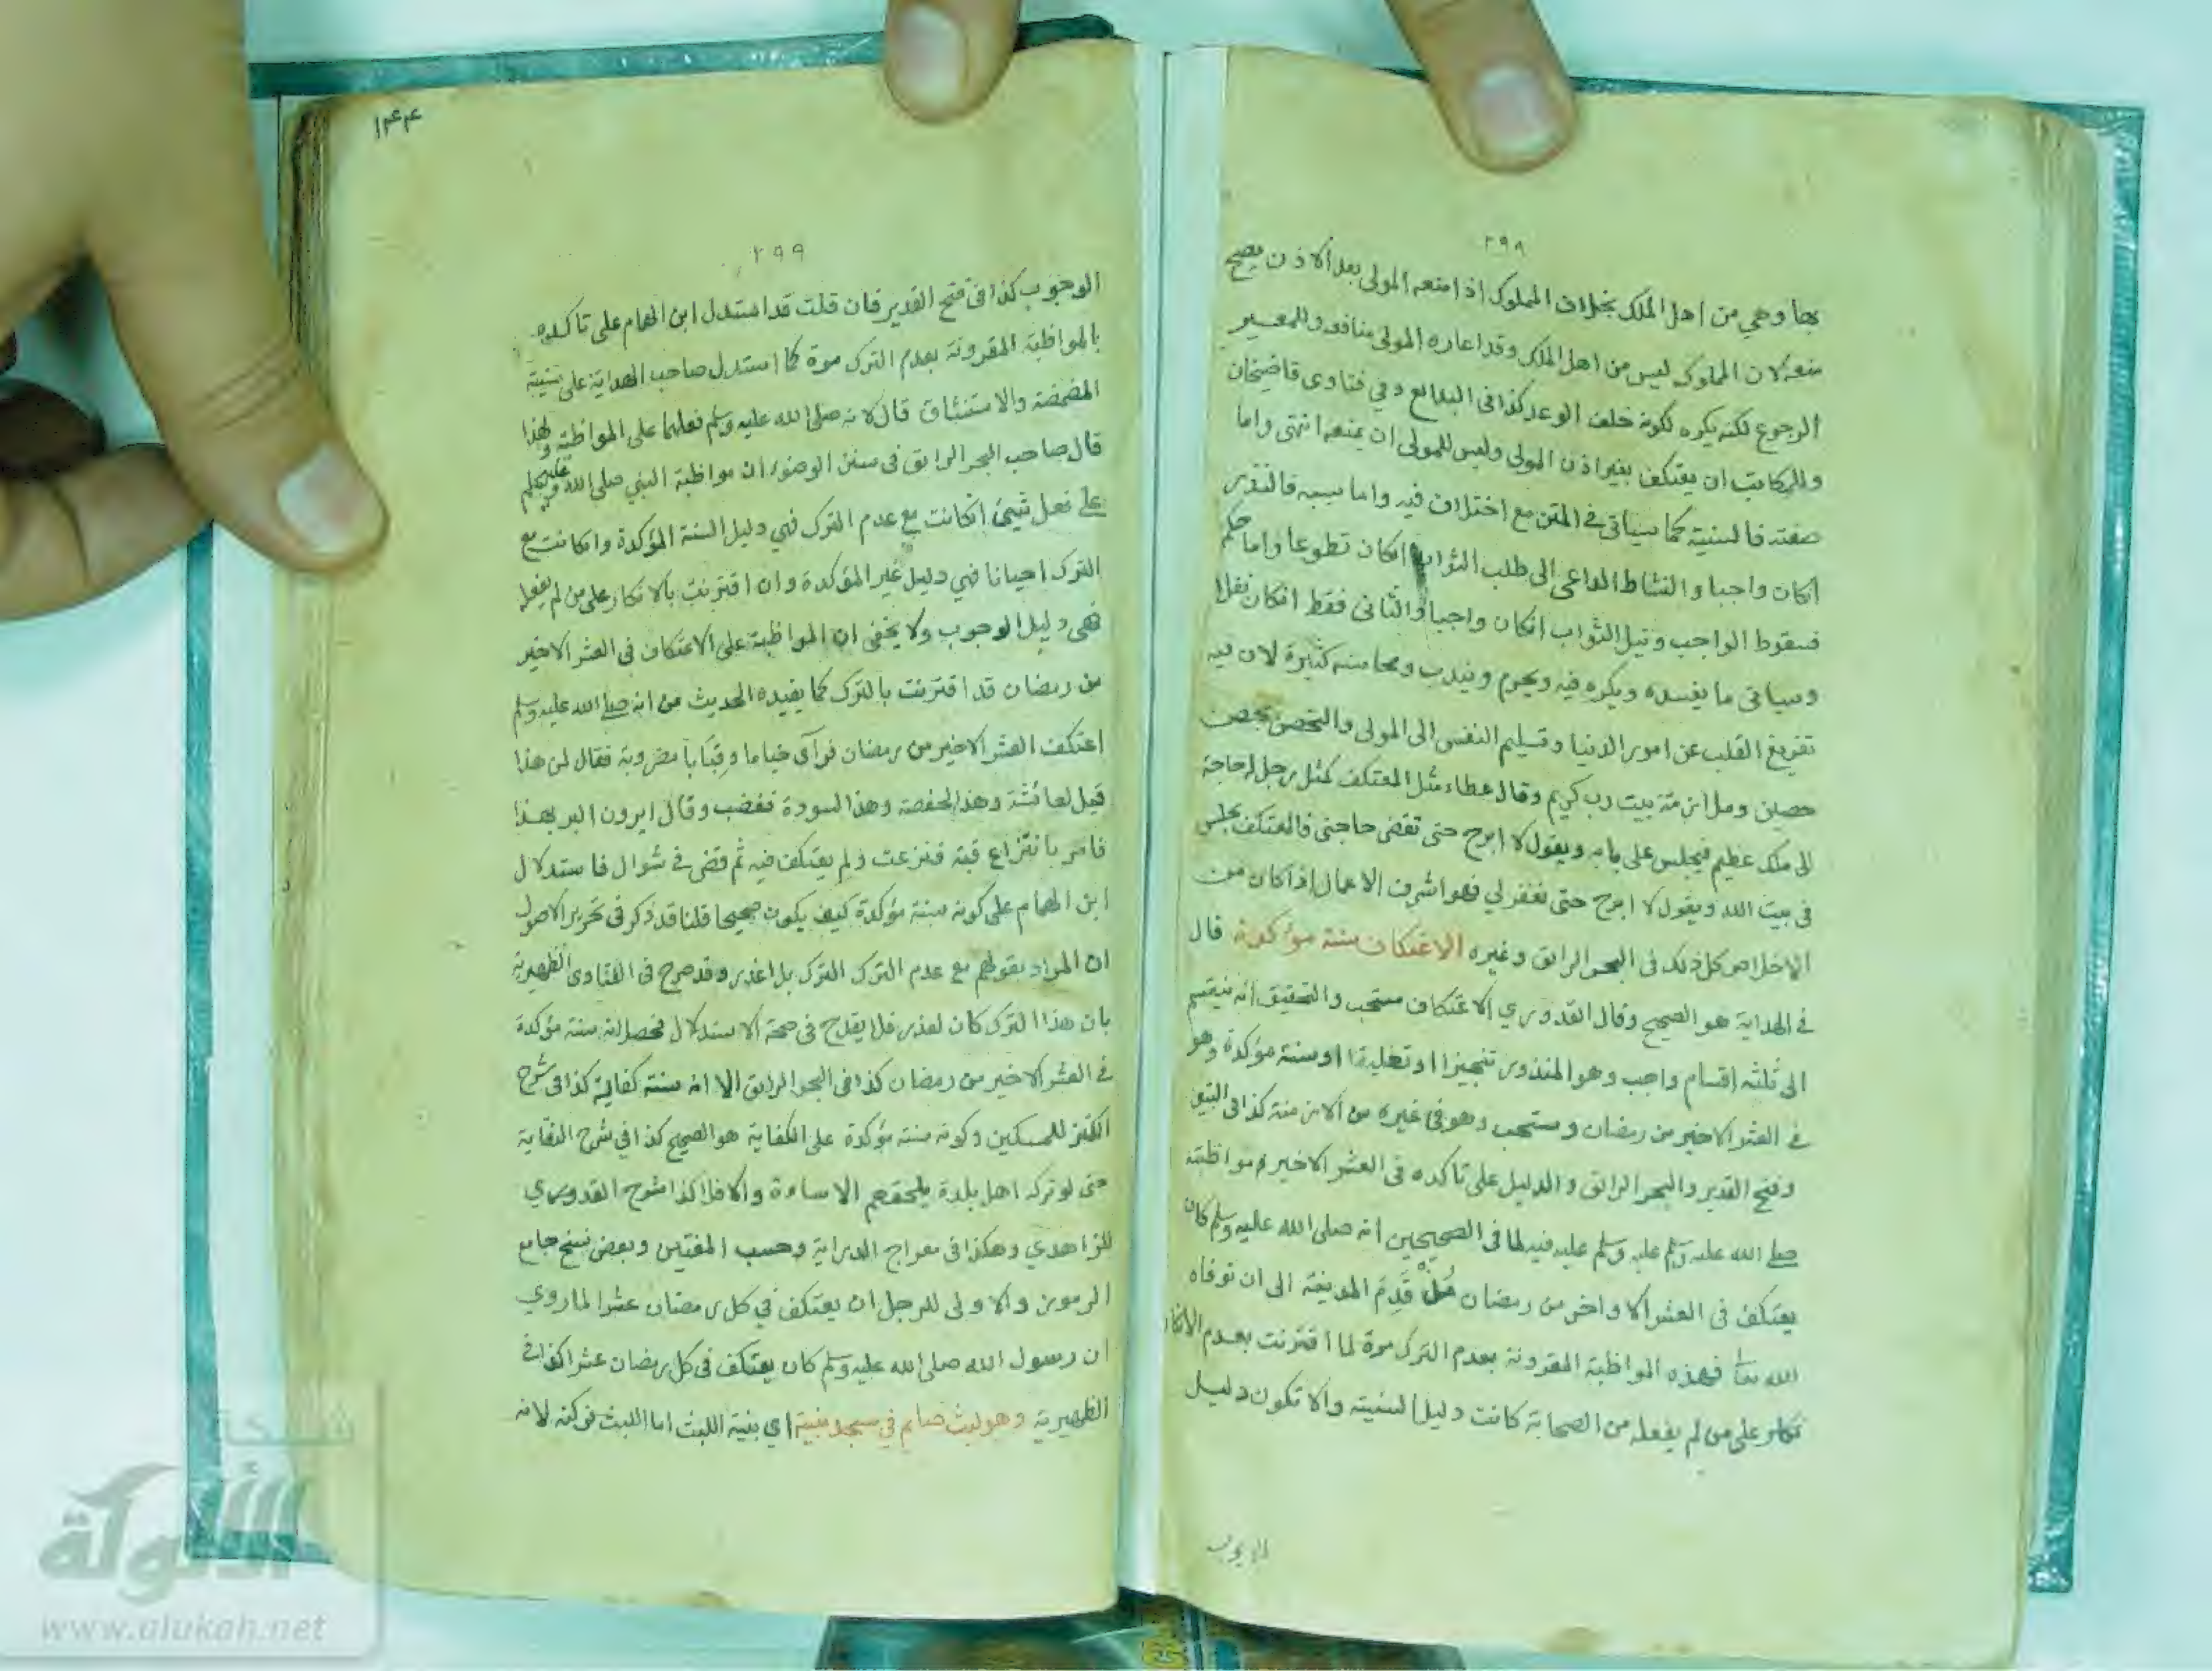 ٢٩٨
بها وهي من اهل الملك بخلاف المملوك اذا منعه المولى بعد الاذن يصح
منعه لان المملوك ليس من اهل الملك وقد اعاره المولى منافعه وللمعير
الرجوع لكنه يكره لكونه خلف الوعد كذا فى البدائع وفي فتاوى قاضيخان
وللمكاتب ان يعتكف بغير اذن المولى وليس للمولى ان يمنعه انتهى واما
صفته فالسنية كما سياتى في المتن مع اختلاف فيه واما سببه فالنذر
انكان واجبا والنشاط الداعى الى طلب الثواب انكان تطوعا واما حكمه
فسقوط الواجب ونيل الثواب انكان واجبا والثانى فقط انكان نفلا
وسياتى ما يفسده ويكره فيه ويحرم ويندب ومحاسنه كثيرة لان فيه
تفريغ القلب عن امور الدنيا وتسليم النفس الى المولى والتحصن بحصن
حصين وملازمة بيت رب كريم وقال عطاء مثل المعتكف كمثل رجل له حاجة
الى ملك عظيم فيجلس على بابه ويقول لا ابرح حتى تقضى حاجتى فالمعتكف يجلس
فى بيت الله ويقول لا ابرح حتى تغفر لي فهو اشرف الاعمال اذا كان من
الاخلاص كل ذلك فى البحر الرائق وغيره الاعتكاف سنة مؤكدة قال
في الهداية هو الصحيح وقال القدوري الاعتكاف مستحب والتحقيق انه ينقسم
الى ثلثه اقسام واجب وهو المنذور تنجيزا او تعليقا او سنة مؤكدة وهو
في العشر الاخير من رمضان ومستحب وهو فى غيره من الازمنة كذا فى التبيين
وفتح القدير والبحر الرائق والدليل على تاكده فى العشر الاخير مواظبته
صلى الله عليه وسلم عليه وسلم عليه فيه لما فى الصحيحين انه صلى الله عليه وسلم كان
يعتكف فى العشر الاواخر من رمضان منذ قَدِمَ المدينة الى ان توفاه
الله تعا فهذه المواظبة المقرونة بعدم الترك مرة لما اقترنت بعدم الانكار
على من لم يفعله من الصحابة كانت دليل السنية والا تكون دليل
الوجوب
١٤٤
٢٩٩
الوجوب كذا فى فتح القدير فان قلت قد استدل ابن الهمام على تاكده
بالمواظبة المقرونة بعدم الترك مرة كما استدل صاحب الهداية على سنية
المضمضة والاستنشاق قال لانه صلى الله عليه وسلم فعلهما على المواظبة ولهذا
قال صاحب البحر الرائق فى سنن الوضوء ان مواظبة النبي صلى الله عليه وسلم
على فعل شيئ انكانت مع عدم الترك فهي دليل السنة المؤكدة وانكانت مع
الترك احيانا فهي دليل غير المؤكدة وان اقترنت بالانكار على من لم يفعله
فهى دليل الوجوب ولا يخفى ان المواظبة على الاعتكاف فى العشر الاخير
من رمضان قد اقترنت بالترك كما يفيده الحديث من انه صلى الله عليه وسلم
اعتكف العشر الاخير من رمضان فرآى خياما وقِبَابا مضروبة فقال لمن هذا
قيل لعائشة وهذا لحفصة وهذا لسودة فغضب وقال ايرون البر بهذا
فامر بانتزاع قبته فنزعت ولم يعتكف فيه ثم قضى في شوال فاستدلال
ابن الهمام على كونه سنة مؤكدة كيف يكون صحيحا قلنا قد ذكر فى تحرير الاصول
ان المراد بقولهم مع عدم الترك الترك بلا عذر وقد صرح فى الفتاوى الظهيرية
بان هذا الترك كان لعذر فلا يقدح فى صحة الاستدلال فحصل انه سنة مؤكدة
في العشر الاخير من رمضان كذا فى البحر الرائق الا انه سنة كفاية كذا فى شرح
الكنز للمسكين وكونه سنة مؤكدة على الكفاية هو الصحيح كذا في شرح النقاية
حتى لو تركه اهل بلدة يلحقهم الاساءة والا فلا كذا شرح القدوري
للزاهدي وهكذا فى معراج الدراية وحسب المفتين وبعض نسخ جامع
الرموز والاولى للرجل ان يعتكف في كل رمضان عشرا لما روي
ان رسول الله صلى الله عليه وسلم كان يعتكف فى كل رمضان عشرا كذا في
الظهيرية وهو لبث صايم في مسجد بنية اي بنية اللبث اما اللبث فركنه لانه
شبكة
الألوكة
www.alukah.net